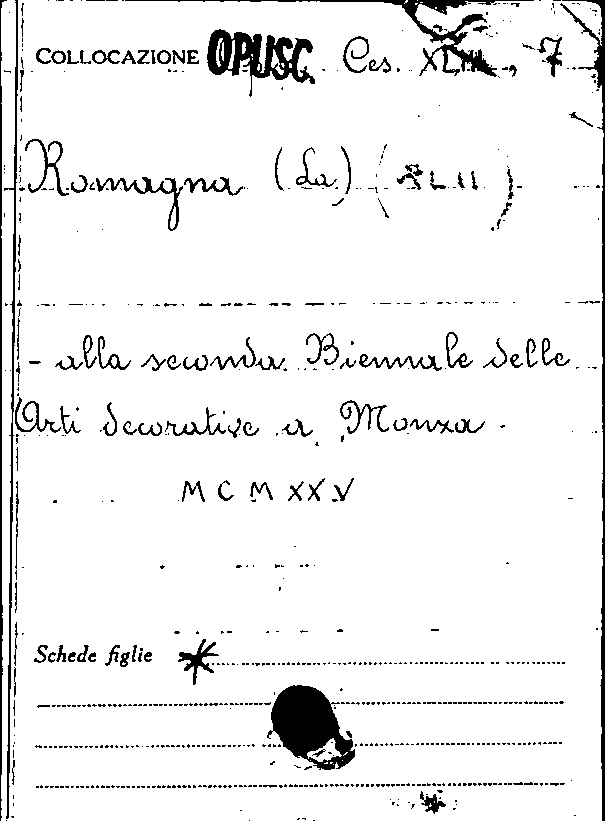 COLLOCAZIONE OPUSC. Ces. XLIII, 7
Romagna (La) (XLII)
- alla seconda Biennale delle
Arti decorative a Monza
MCMXXV
Schede figlie *